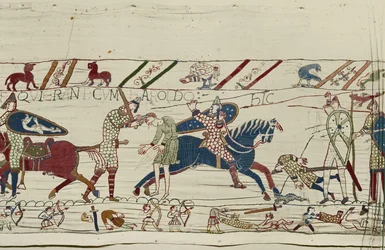 QVI ERANT CVM HAROLDO : HIC